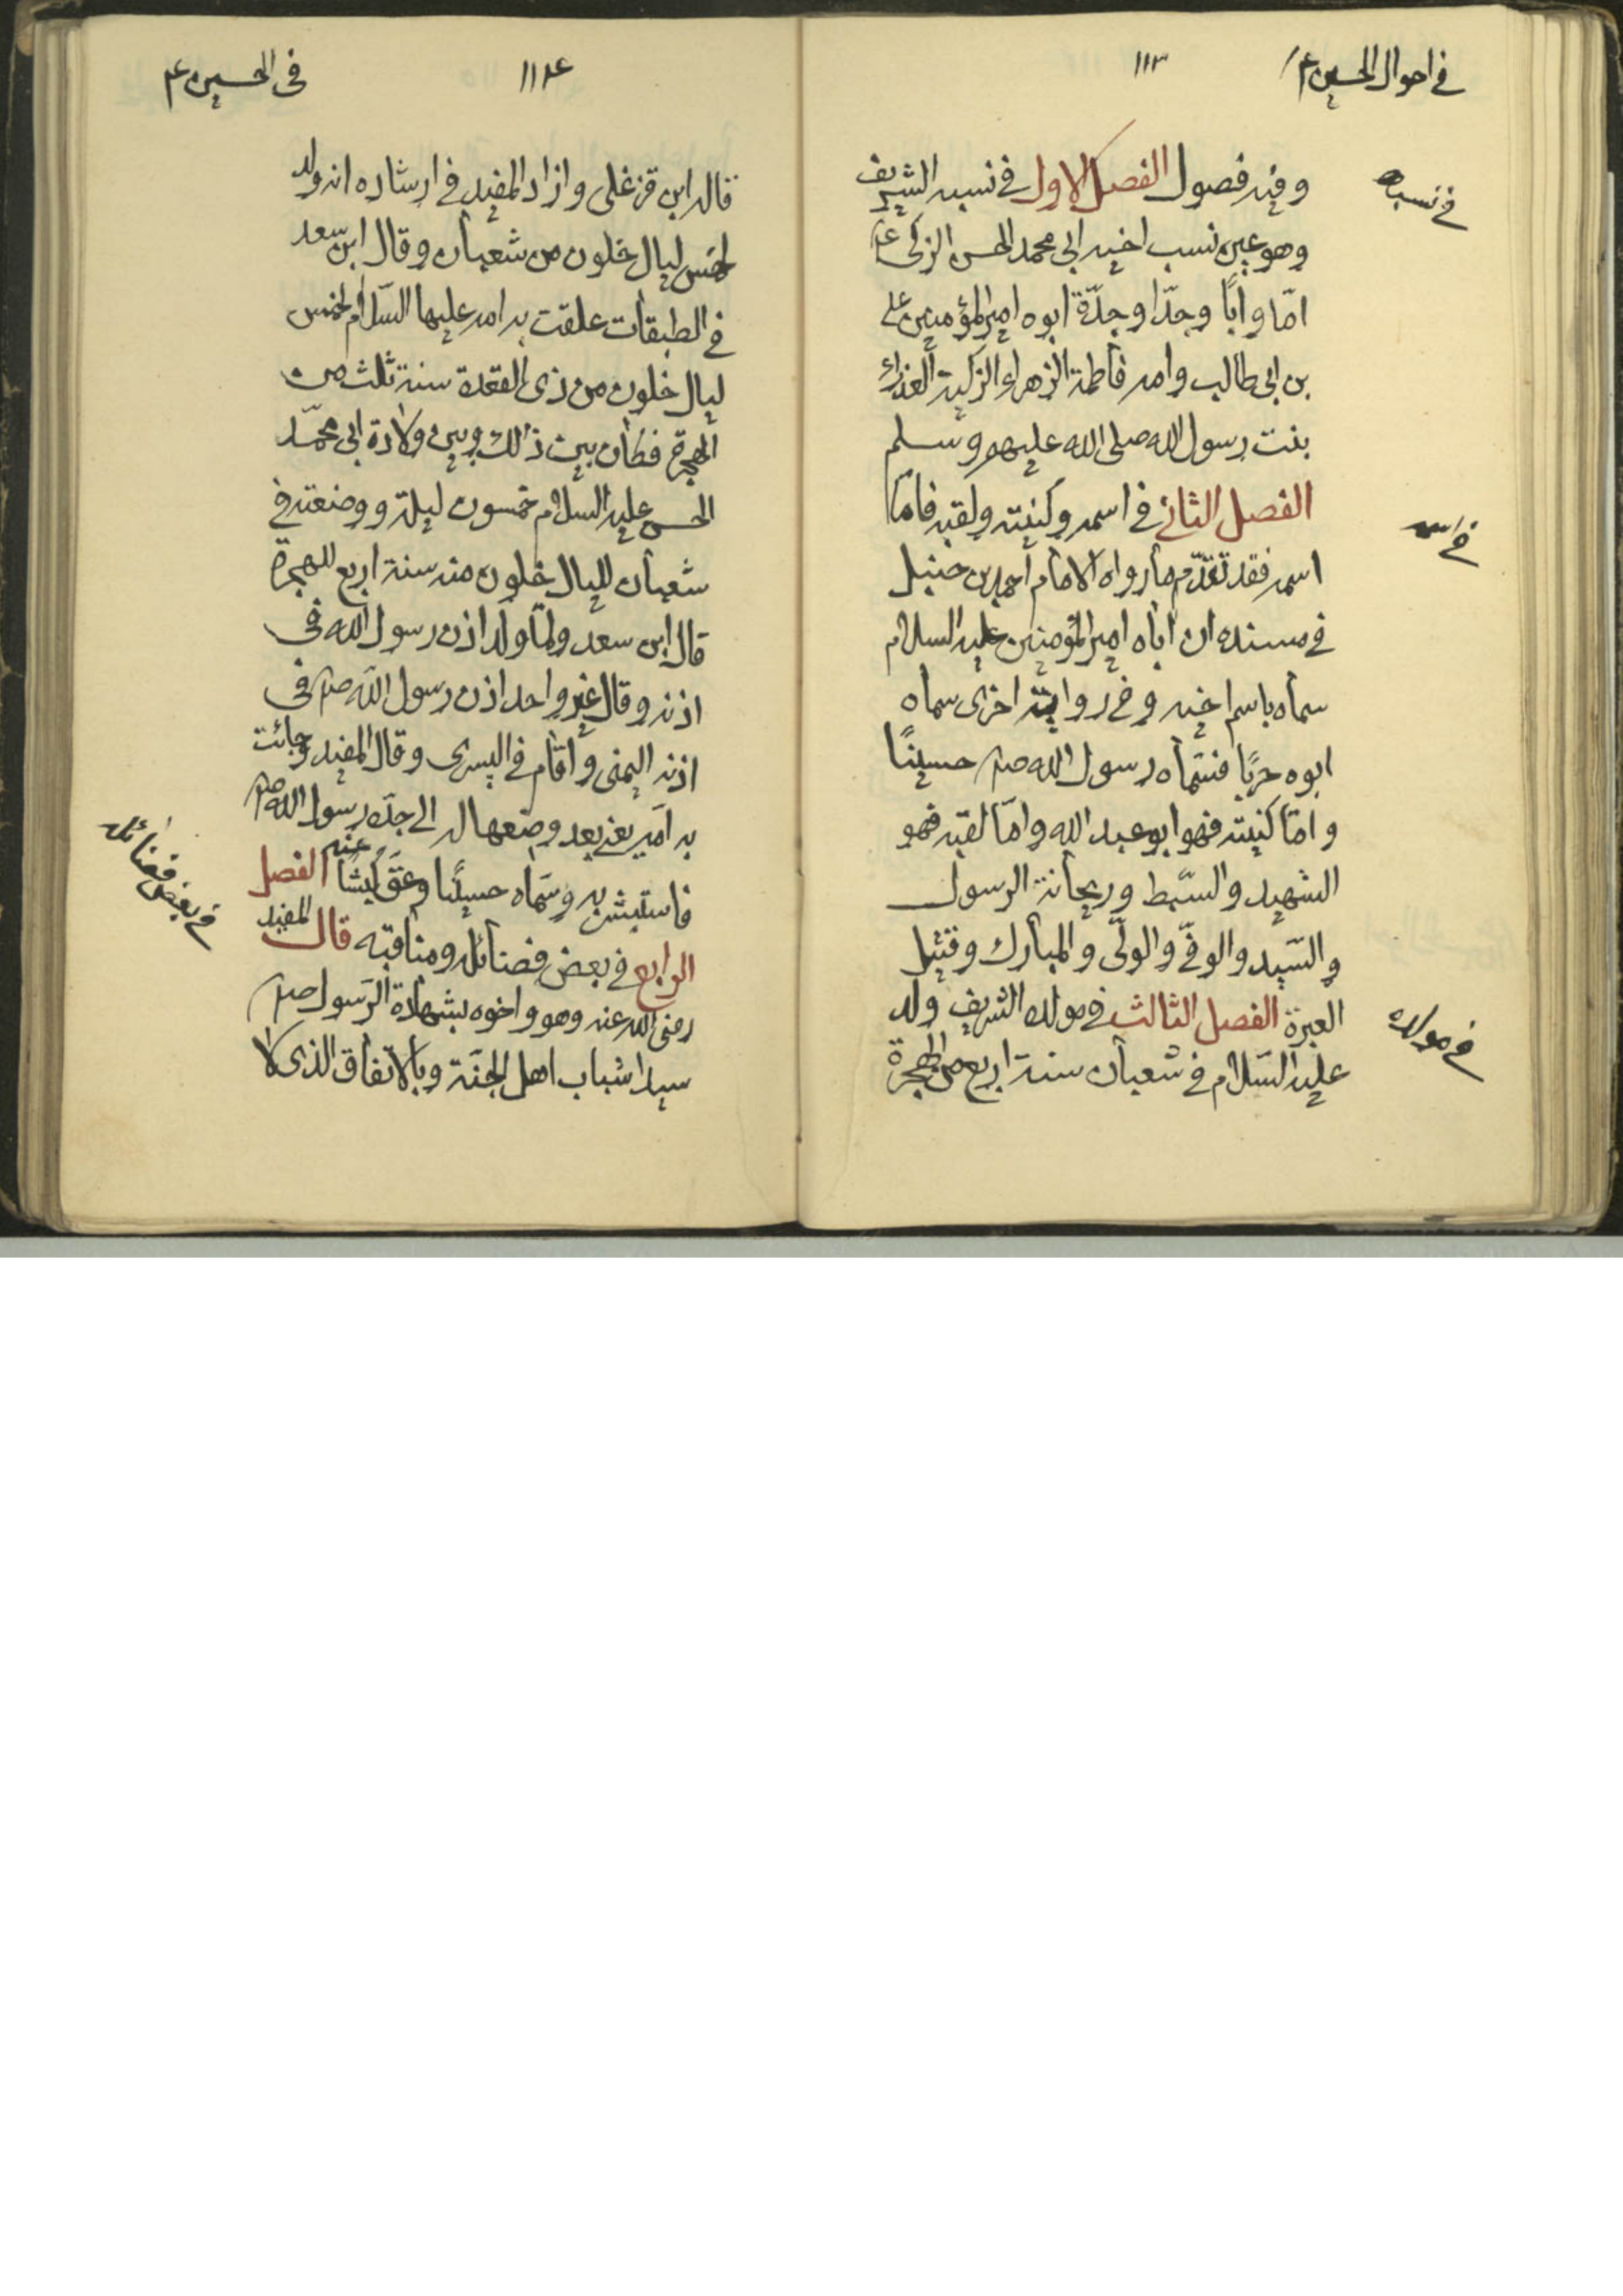 في احوال الحسين ع
١١٣
وفيه فصول الفصل الاول في نسبه الشريف
في نسبه
وهو عين نسب اخيه ابي محمد الحسن الزكي ع
امّا وابًا وجدّا وجدّة ابوه امير المؤمنين علي
بن ابي طالب وامه فاطمة الزهراء الزكية العذراء
بنت رسول الله صلى الله عليهم وسلم
الفصل الثاني في اسمه وكنيته ولقبه فامّا
في اسمه
اسمه فقد تقدّم ما رواه الامام احمد بن حنبل
في مسنده ان اباه امير المؤمنين عليه السلام
سماه باسم اخيه وفي رواية اخرى سماه
ابوه حربًا فسمّاه رسول الله صلم حسينًا
وامّا كنيته فهو ابو عبد الله وامّا لقبه فهو
الشهيد والسّبط وريحانة الرسول
والسّيد والوفيّ والوليّ والمبارك وقتيل
العبرة الفصل الثالث في مولده الشريف ولد
في مولده
عليه السّلام في شعبان سنة اربع من الهجرة
في الحسين ع
١١٤
قاله ابن قزغلي وازاد المفيد في ارشاده انه ولد
لخمس ليال خلون من شعبان وقال ابن سعد
في الطبقات علقت به امه عليها السّلام لخمس
ليال خلون من ذي القعدة سنة ثلث من
الهجرة فكان بين ذلك وبين ولادة ابي محمّد
الحسن عليه السلام خمسون ليلة ووضعته في
شعبان لليال خلون منه سنة اربع للهجرة
قال ابن سعد ولمّا ولد اذن رسول الله في
اذنه وقال غير واحد اذن رسول الله صلم في
اذنه اليمنى واقام في اليسرى وقال المفيد وجائت
به امّه يعني بعد وضعها له الى جدّه رسول الله صلم
فاستبشر به وسمّاه حسينًا وعقّ عنه كبشًا الفصل
الرابع في بعض فضائله ومناقبه قال المفيد
في بعض فضائله
رضي الله عنه وهو واخوه بشهادة الرّسول صلم
سيدا شباب اهل الجنّة وبالاتفاق الذي لا